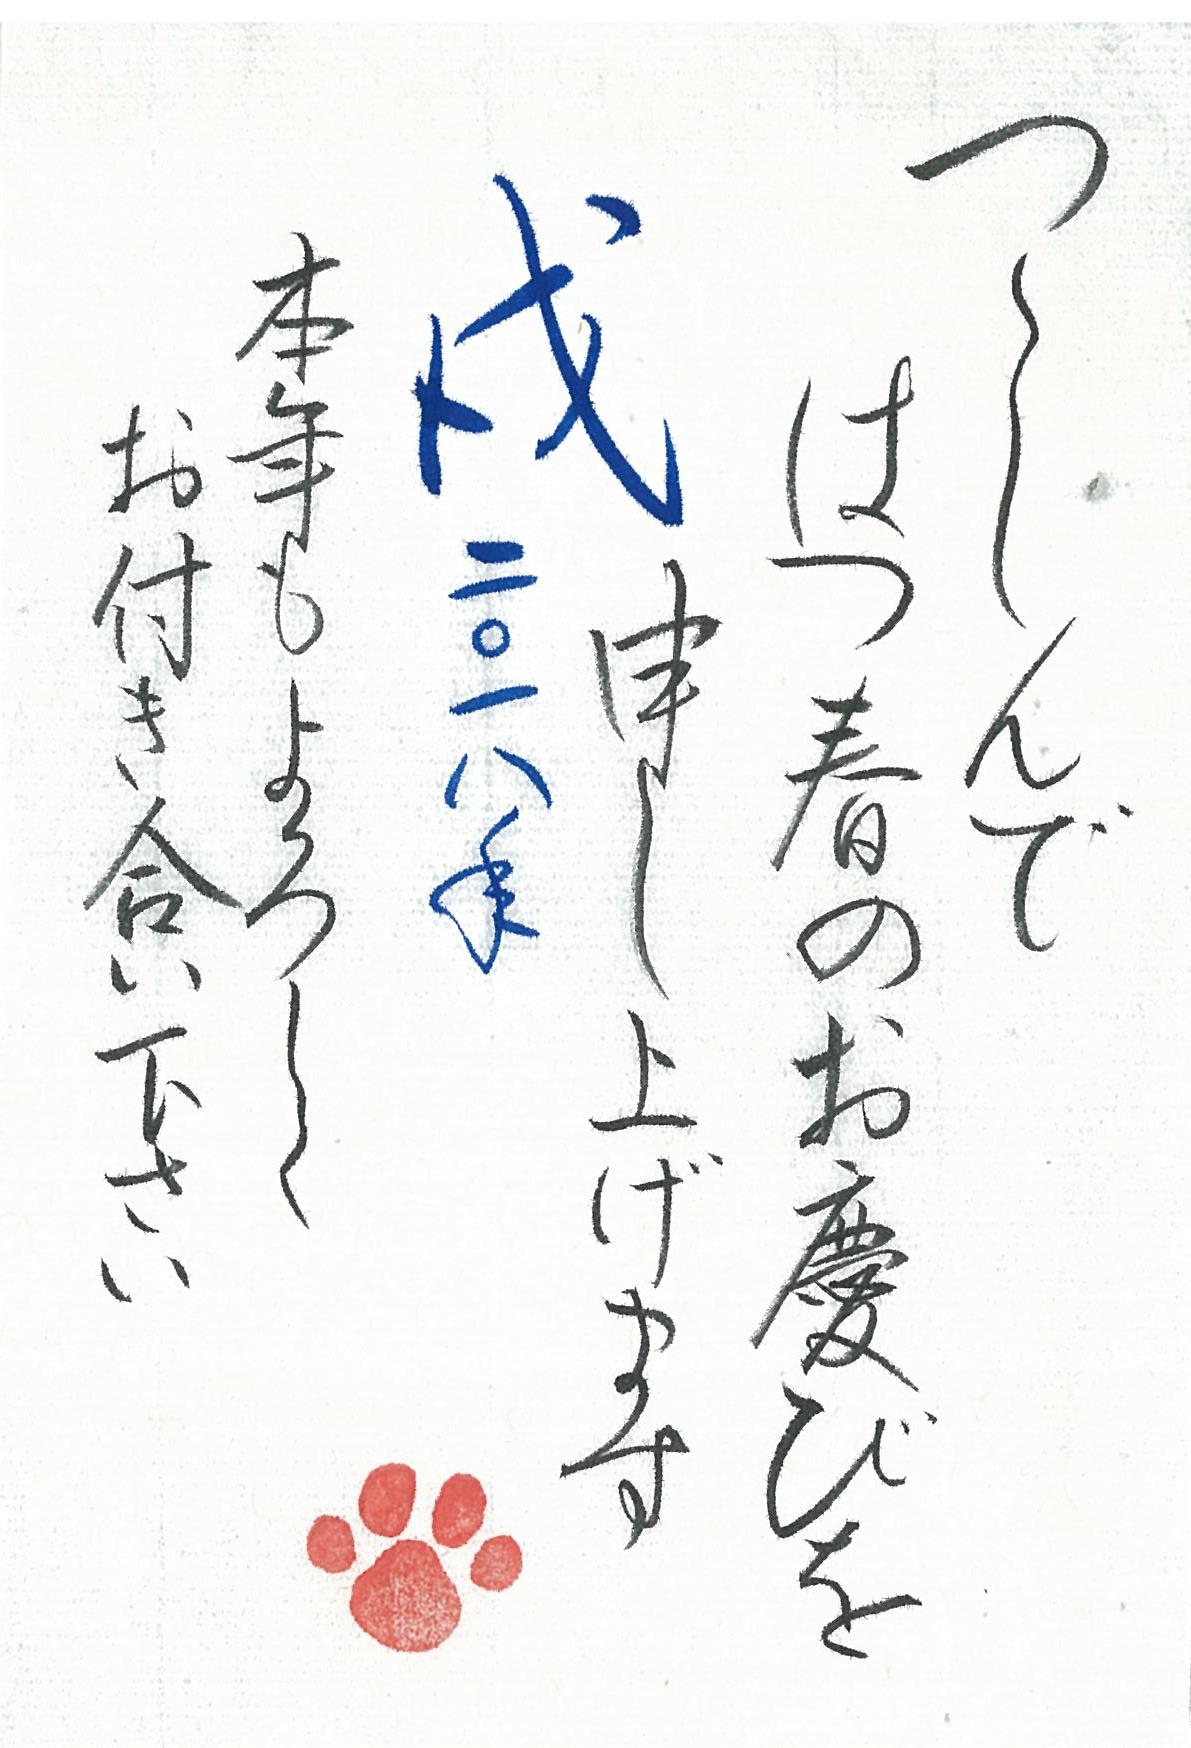 つゝしんで
はつ春のお慶びを
申し上げます
戌 二〇一八年
本年もよろしく
お付き合い下さい